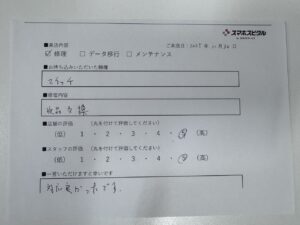 スマホスピタル
■来店内容
ご来店日:
☑ 修理 □ データ移行 □ メンテナンス
■お持ち込みいただいた機種
スイッチ
■修理内容
液晶交換
■店舗の評価 (丸を付けて評価してください)
(低) 1 ・ 2 ・ 3 ・ 4 ・ 5 (高)
■スタッフの評価 (丸を付けて評価してください)
(低) 1 ・ 2 ・ 3 ・ 4 ・ 5 (高)
■一言いただけますと幸いです
対応良かったです。